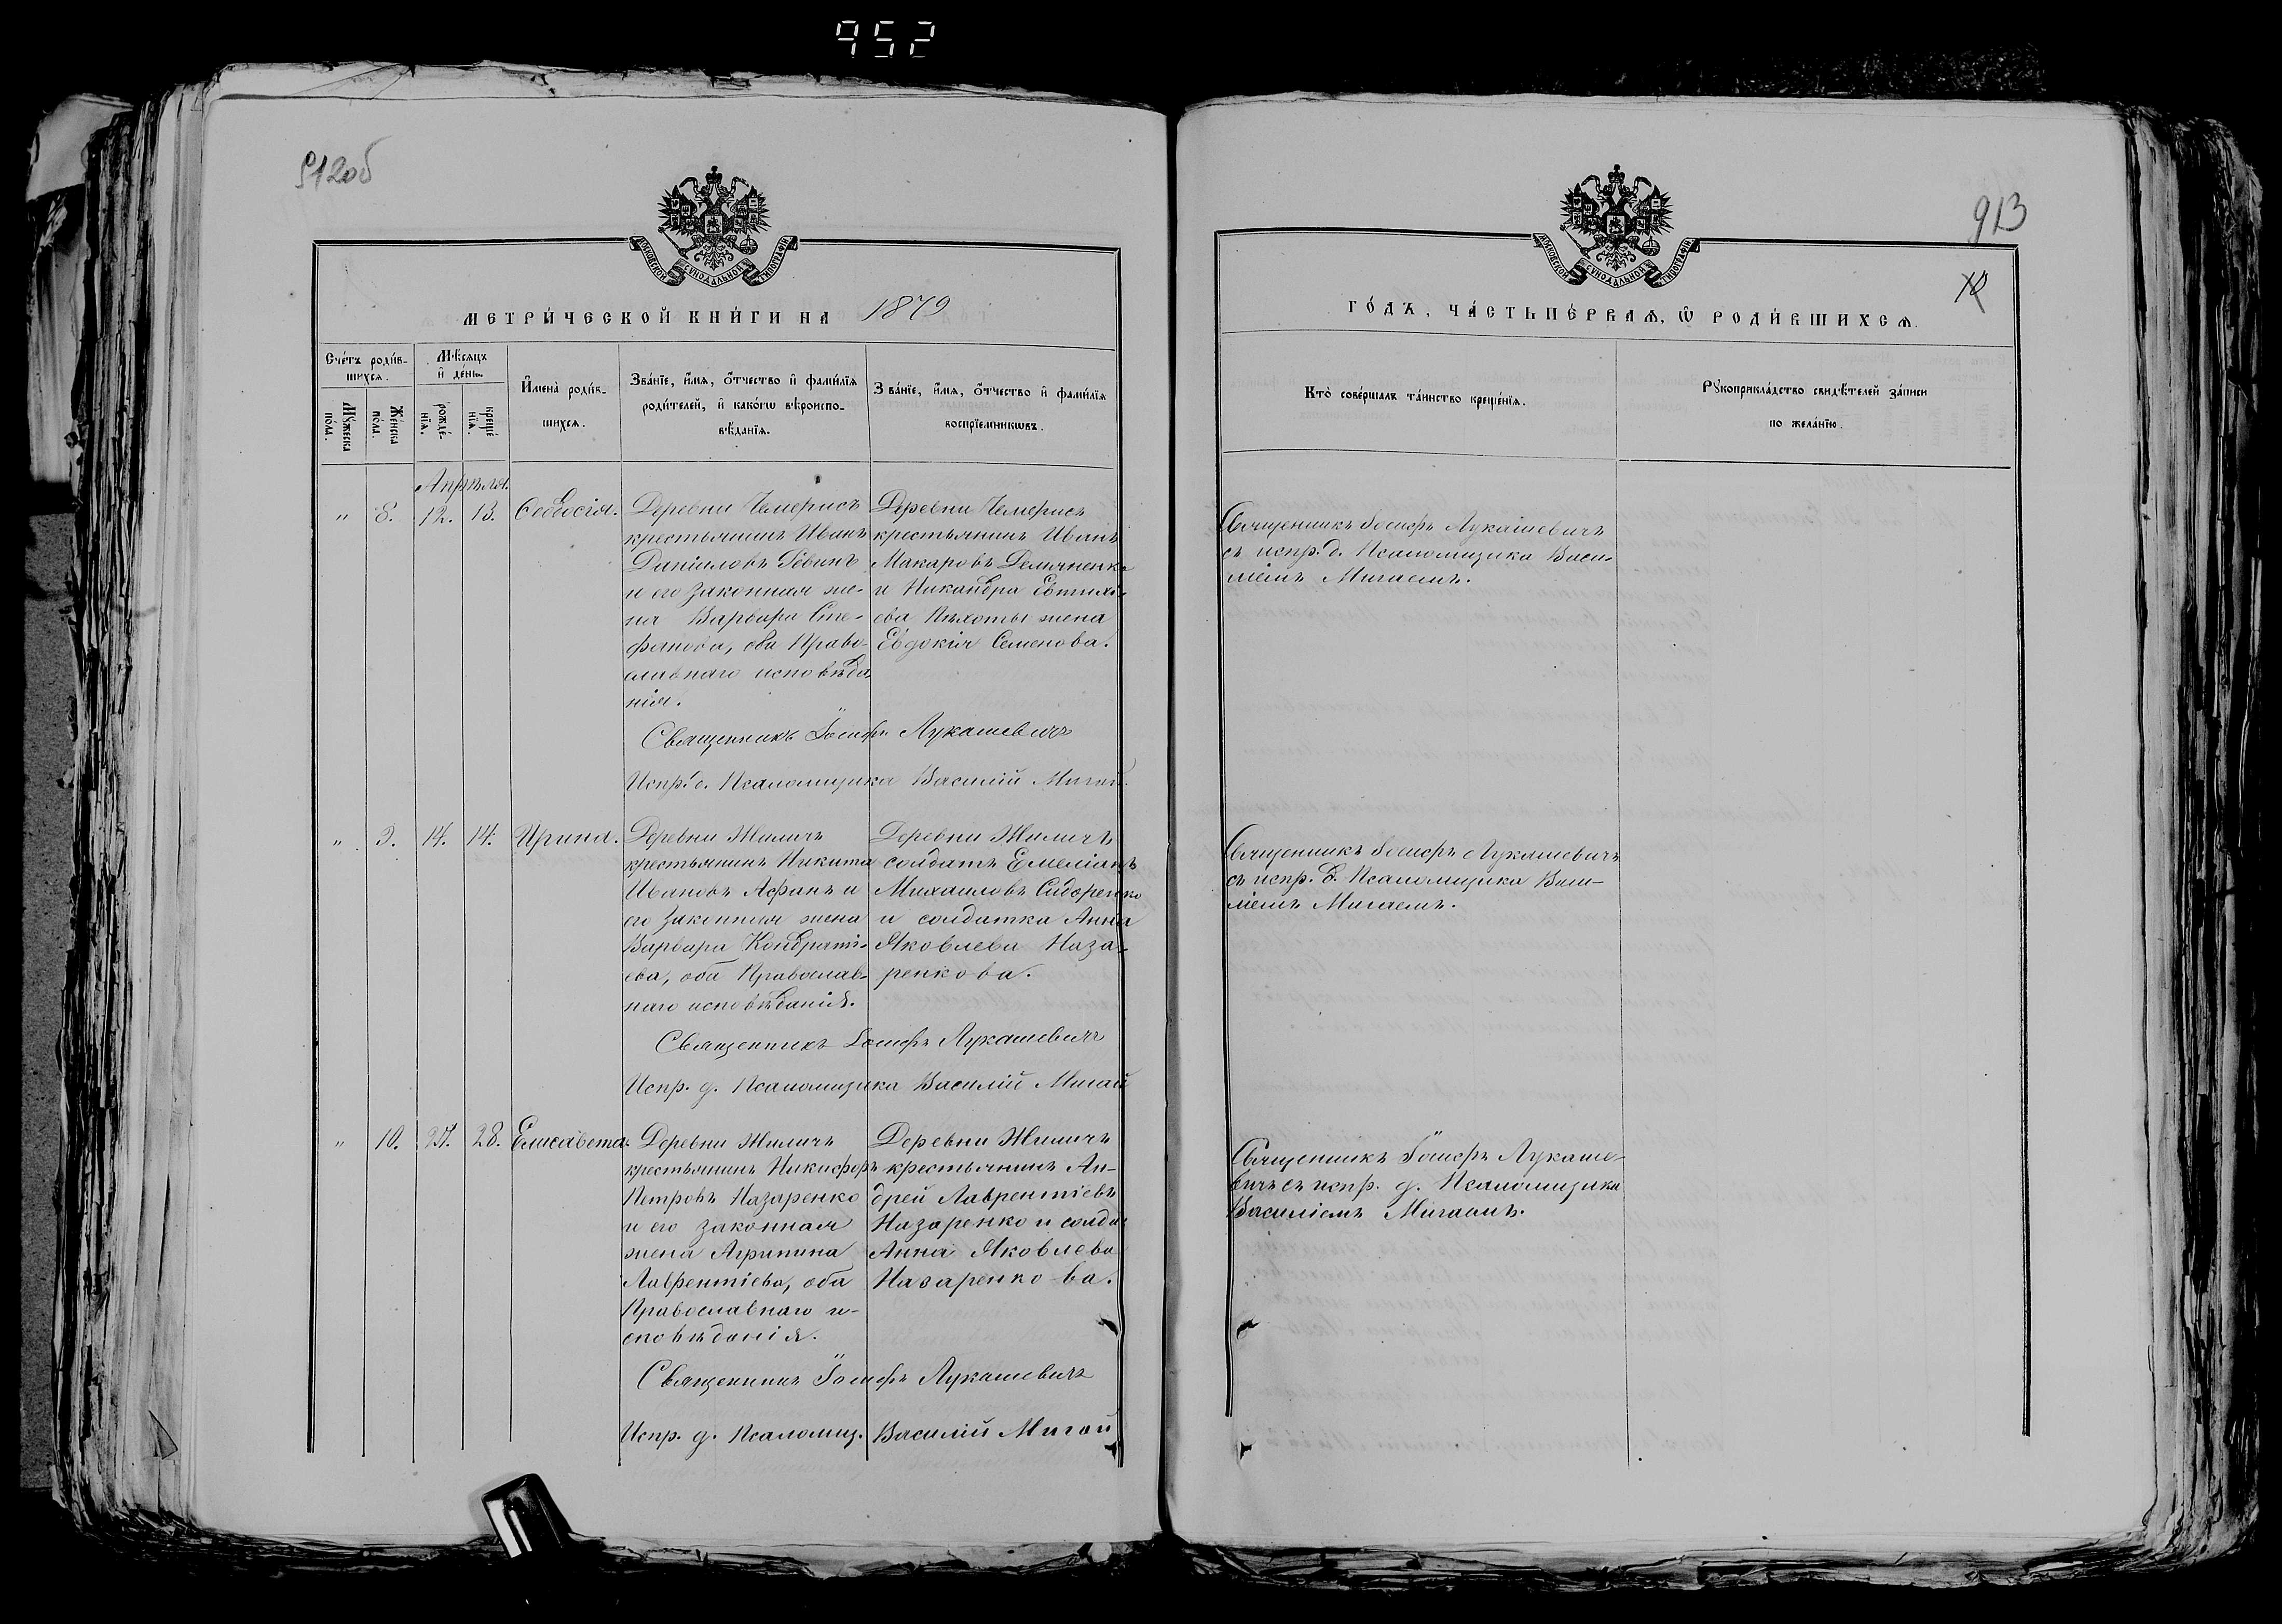 952
912об
МОСКОВСКОЙ СѴНОДАЛЬНОЙ ТИПОГРАФІИ
МЕТРИ́ЧЕСКОЙ КНИ́ГИ НА 1879
Сче́тъ роди́в-
шихся.
Мѣ́сяцъ
и҆ де́нь.
Мꙋ́жеска
по́ла.
Же́нска
по́ла.
рожде́-
нїѧ.
креще́
нїѧ.
И҆мена̀ роди́в-
шихсѧ.
Зва́нїе, и҆́мѧ, ѻ҆́тчество и҆ фами́лїѧ
роди́телей, и҆ како́гѡ вѣроиспо-
вѣ́данїѧ.
Зва́нїе, и҆́мѧ, ѻ҆́тчество и҆ фами́лїѧ
воспрїе́мникѡвъ.
Апрѣля.
" 8. 12. 13. Ѳеодосія.
Деревни Чемерисъ
крестьянинъ Иванъ
Даніиловъ Гевинъ
и его законная же-
на Варвара Сте-
фанова, оба Право-
славнаго исповѣда
нія.
Деревни Чемерисъ
крестьянинъ Иванъ
Макаровъ Демяненко
и Никандра Евтихі-
ева Пѣхоты жена
Евдокія Семенова.
Священникъ Іосифъ Лукашевичъ
Испр. д. Псаломщика Василій Мигай.
" 9. 14. 14. Ирина.
Деревни Жиличъ
крестьянинъ Никита
Ивановъ Асфанъ и
его законная жена
Варвара Кондраті-
ева, оба Православ-
наго исповѣданія.
Деревни Жиличъ
солдатъ Емеліанъ
Михаиловъ Сидоренко
и солдатка Анна
Яковлева Наза-
ренкова.
Священникъ Іосифъ Лукашевичъ
Испр. д. Псаломщика Василій Мигай
" 10. 27. 28. Елисавета.
Деревни Жиличъ
крестьянинъ Никифоръ
Петровъ Назаренко
и его законная
жена Агрипина
Лаврентіева, оба
Православнаго и-
сповѣданія.
Деревни Жиличъ
крестьянинъ Ан-
дрей Лаврентіевъ
Назаренко и солда-
Анна Яковлева
Назаренко-ва.
Священникъ Іосифъ Лукашевичъ
Испр. д. Псаломщ. Василій Мигай
913
10
МОСКОВСКОЙ СѴНОДАЛЬНОЙ ТИПОГРАФІИ
ГО́ДЪ, ЧА́СТЬ ПЕ́РВАѦ, Ѽ РОДИ́ВШИХСѦ.
Кто̀ соверша́лъ та́инство креще́нїѧ.
Рꙋкоприкла́дство свидѣ́телей за́писи
по жела́нїю.
Священникъ Іосифъ Лукашевичъ
съ испр. д. Псаломщика Васи-
ліемъ Мигаемъ.
Священникъ Іосифъ Лукашевичъ
съ испр. д. Псаломщика Васи-
ліемъ Мигаемъ.
Священникъ Іосифъ Лукаше-
вичъ съ испр. д. Псаломщика
Василіемъ Мигаемъ.